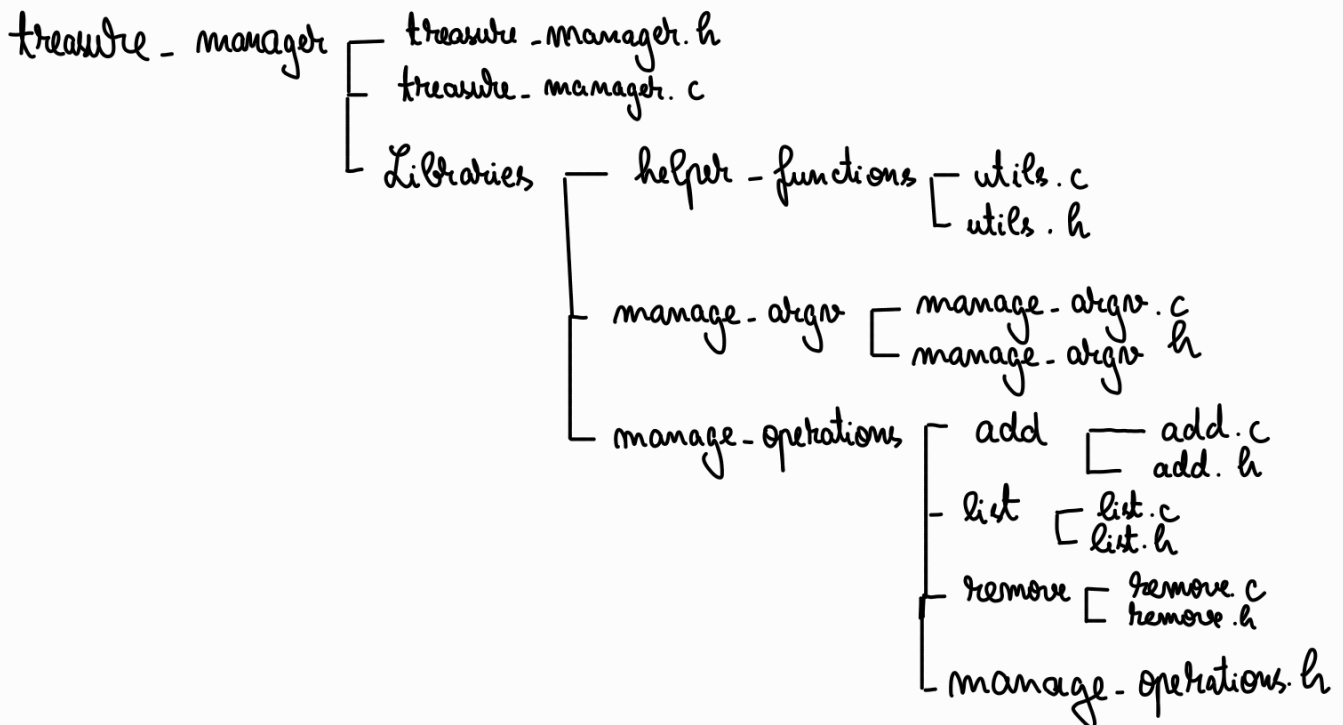 treasure_manager
treasure_manager.h
treasure_manager.c
Libraries
helper_functions
utils.c
utils.h
manage_argv
manage_argv.c
manage_argv h
manage_operations
add
add.c
add.h
list
list.c
list.h
remove
remove.c
remove.h
manage_operations.h